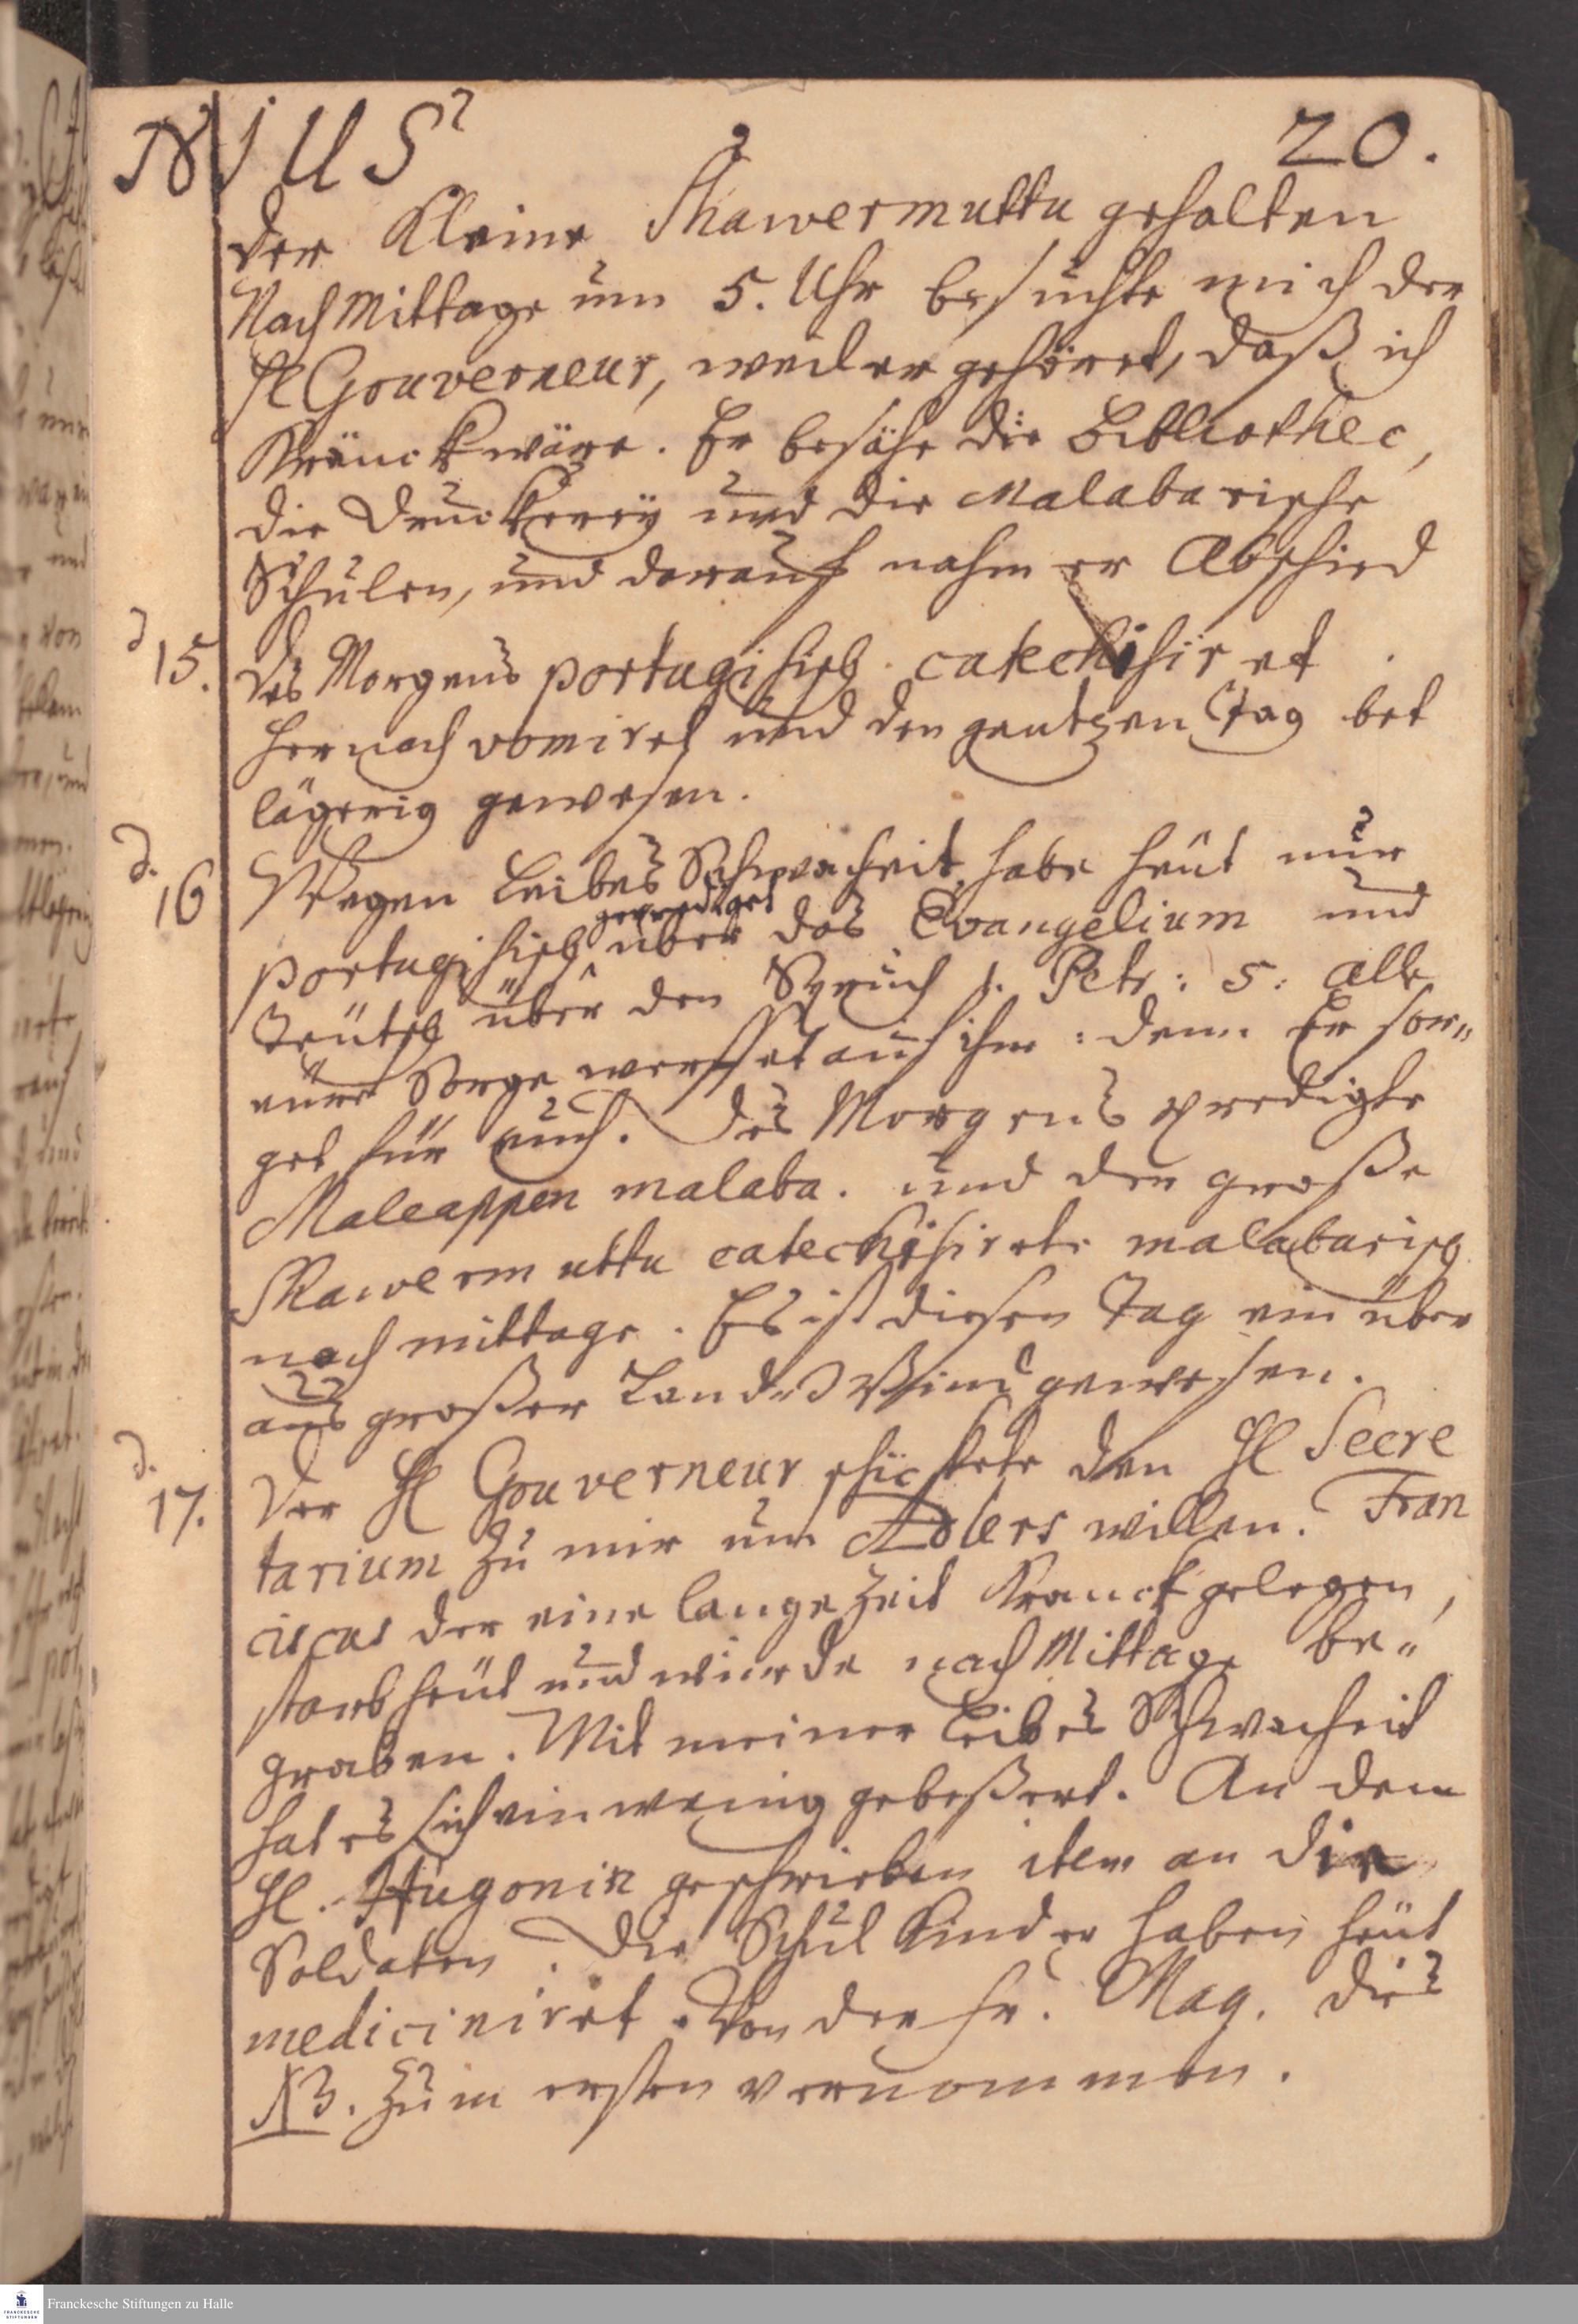 NIUS 20.
der Kleine Shawermuttu gehalten
Nach Mittage um 5. Uhr besuchte mich der
Hl Gouverneur, weil er gehöret, daß ich
Kranck wäre. Er besahe die Bibliothec,
die Druckerey und die Malabarische
Schulen, und darauf nahm er Abschied
d 15. des Morgens portugisisch catechisiret
hernach vomiret und den gantzen Tag bet
lägerig gewesen.
d. 16 Wegen Leibes Schwacheit habe heut nur
geprediget
portugisisch über das Evangelium und
Teutsch über den Spruch 1. Petr: 5: alle
eure Sorge werffet auf ihn: denn Er sor„
get für euch. Des Morgens predigte
Maleappen malaba. und der große
Shawermuttu catechisirete malabarisch
nach mittage. Es ist diesen Tag ein über
aus großer Landes Wind gewesen.
d. 17. Der Hl Gouverneur schickete den Hl Secre
tarium zu mir um Adlers willen. Fran
ciscus der eine lange Zeit Kranck gelegen,
starb heut und wurde nach Mittage be„
graben. Mit meiner Leibes Schwacheit
hat es sich ein wenig gebeßert. An dem
Hl. Hugonin geschrieben item an die
Soldaten. Die Schul Kinder haben heut
mediciniret. Von der Fr. Mag. dies
NB. zum ersten vernommen.
Franckesche Stiftungen zu Halle